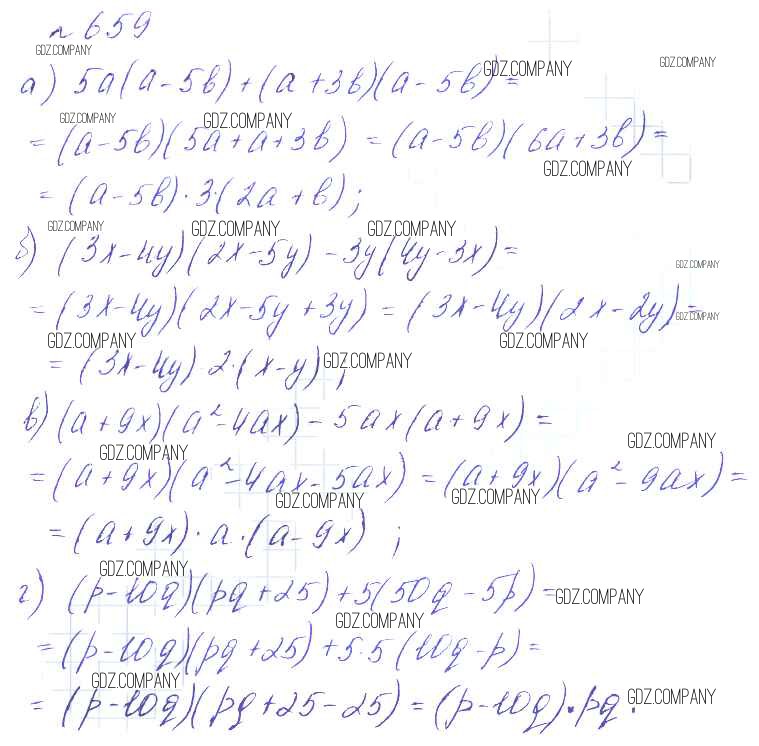 № 659
GDZ.COMPANY
GDZ.COMPANY GDZ.COMPANY
а) 5a(a-5b)+(a+3b)(a-5b)=
GDZ.COMPANY GDZ.COMPANY
=(a-5b)(5a+a+3b) =(a-5b)(6a+3b)=
GDZ.COMPANY
=(a-5b)·3·(2a+b);
GDZ.COMPANY GDZ.COMPANY GDZ.COMPANY
б) (3x-4y)(2x-5y)-3y(4y-3x)=
GDZ.COMPANY
=(3x-4y)(2x-5y+3y)=(3x-4y)(2x-2y)=
GDZ.COMPANY
GDZ.COMPANY GDZ.COMPANY
=(3x-4y)·2·(x-y);
GDZ.COMPANY
в) (a+9x)(a²-4ax)-5ax(a+9x)=
GDZ.COMPANY GDZ.COMPANY
=(a+9x)(a²-4ax-5ax)=(a+9x)(a²-9ax)=
GDZ.COMPANY GDZ.COMPANY
=(a+9x)·a·(a-9x) ;
GDZ.COMPANY
г) (p-10q)(pq+25)+5(50q-5p)=
GDZ.COMPANY
GDZ.COMPANY
=(p-10q)(pq+25)+5·5(10q-p)=
GDZ.COMPANY GDZ.COMPANY
=(p-10q)(pq+25-25)=(p-10q)·pq.